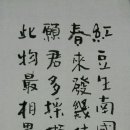 紅豆生南國
春來發幾枝
願君多採擷
此物最相思